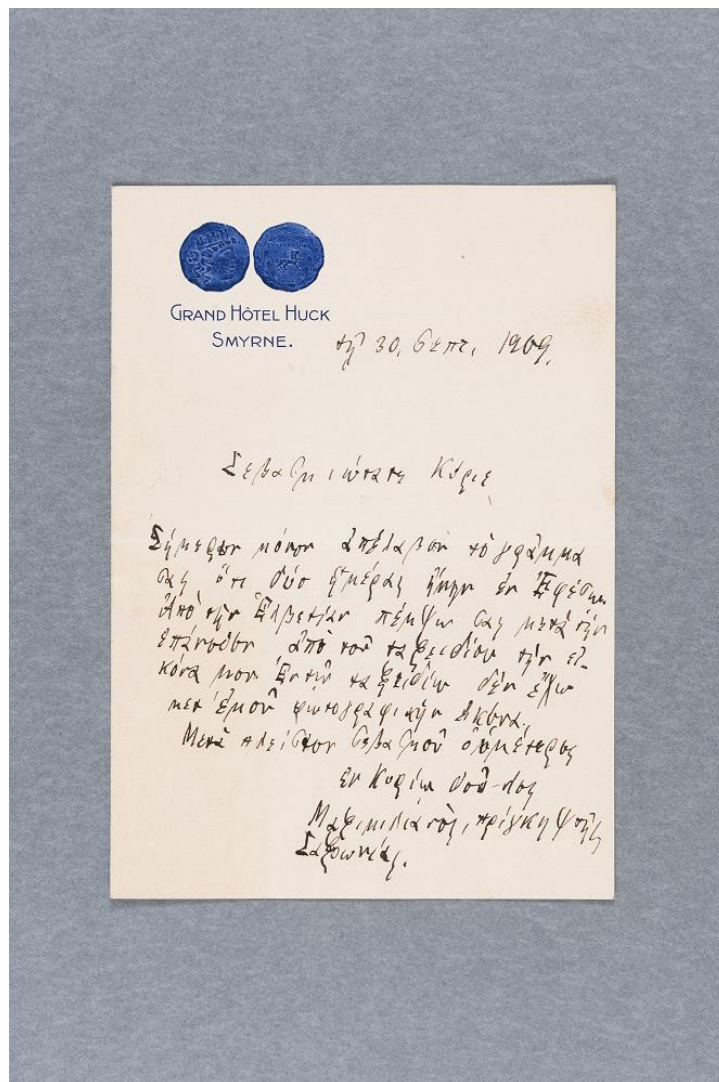 GRAND HÔTEL HUCK
SMYRNE.
τῇ 30, Σεπτ. 1909.
Σεβασμιώτατε Κύριε
Σήμερον μόνον ἀπέλαβον τὸ γράμμα
σας ὅτι δύο ἡμέρας ἤμην ἐν Ἐφέσῳ.
Ἀπὸ τὴν Ἑλβετίαν πέμψω σας μετὰ τὴν
ἐπάνοδον ἀπὸ τοῦ ταξειδίου τὴν εἰ-
κόνα μου Ἐν τῷ ταξειδίῳ δὲν ἔχω
μετ' ἐμοῦ φωτογραφικὴν
Μετὰ πλείστου σεβασμοῦ ὁ ὑμέτερος
ἐν Κυρίῳ δοῦλος
Μαξιμιλιανὸς, πρίγκηψ τῆς
Σαξωνίας.